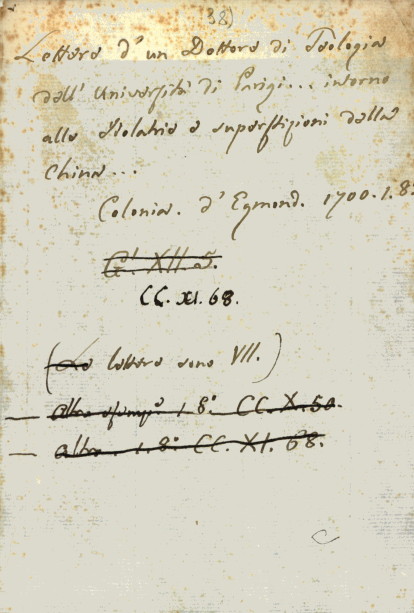 38)
Lettere d'un Dottore di Teologia
dell' Università di Parigi... intorno
alle Idolatrie e superstizioni della
China...
Colonia. d'Egmond. 1700. 1. 8°
G' XII. a5.
CC. XI. 68.
(Le lettere sono VII.)
— Altro esemp. 1 8° CC. X. 50.
— altro. 1. 8° CC. XI. 68.